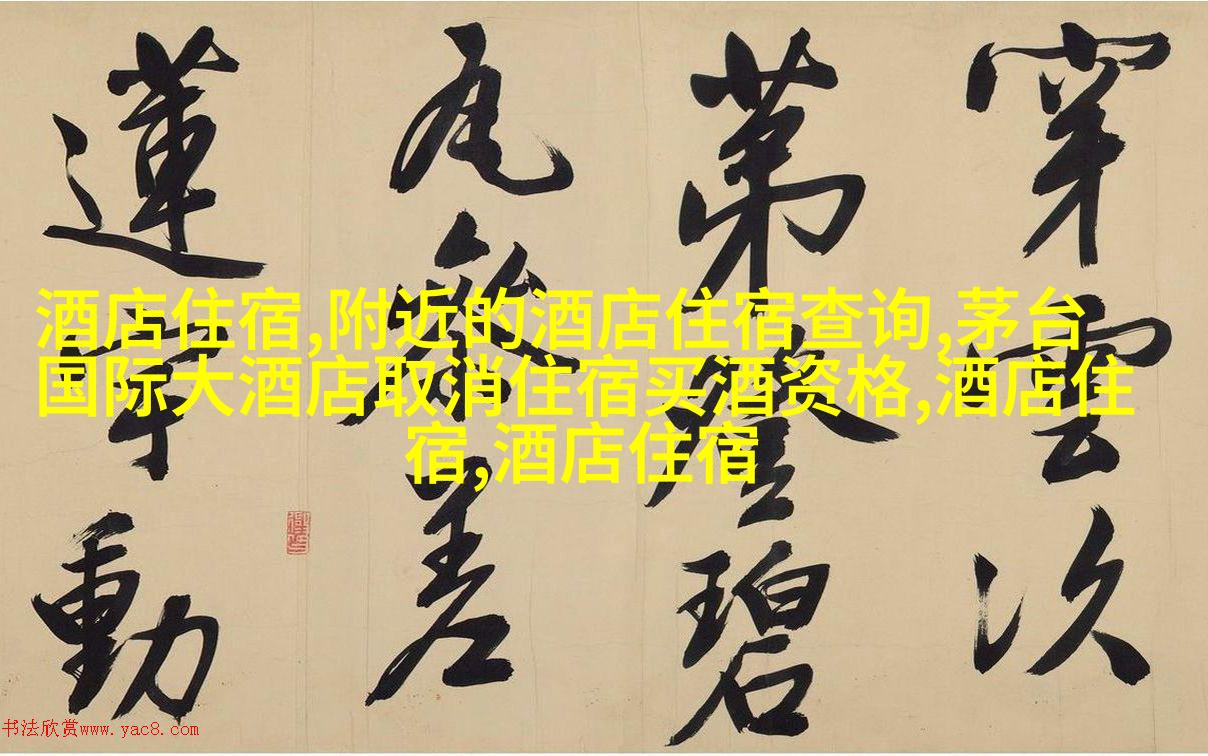 穿雲次
第登碧
瓦參差
蓮宇動
酒店住宿,附近的酒店住宿查询,茅台
国际大酒店取消住宿买酒资格,酒店住
宿,酒店住宿
书法欣赏www.yac8.com